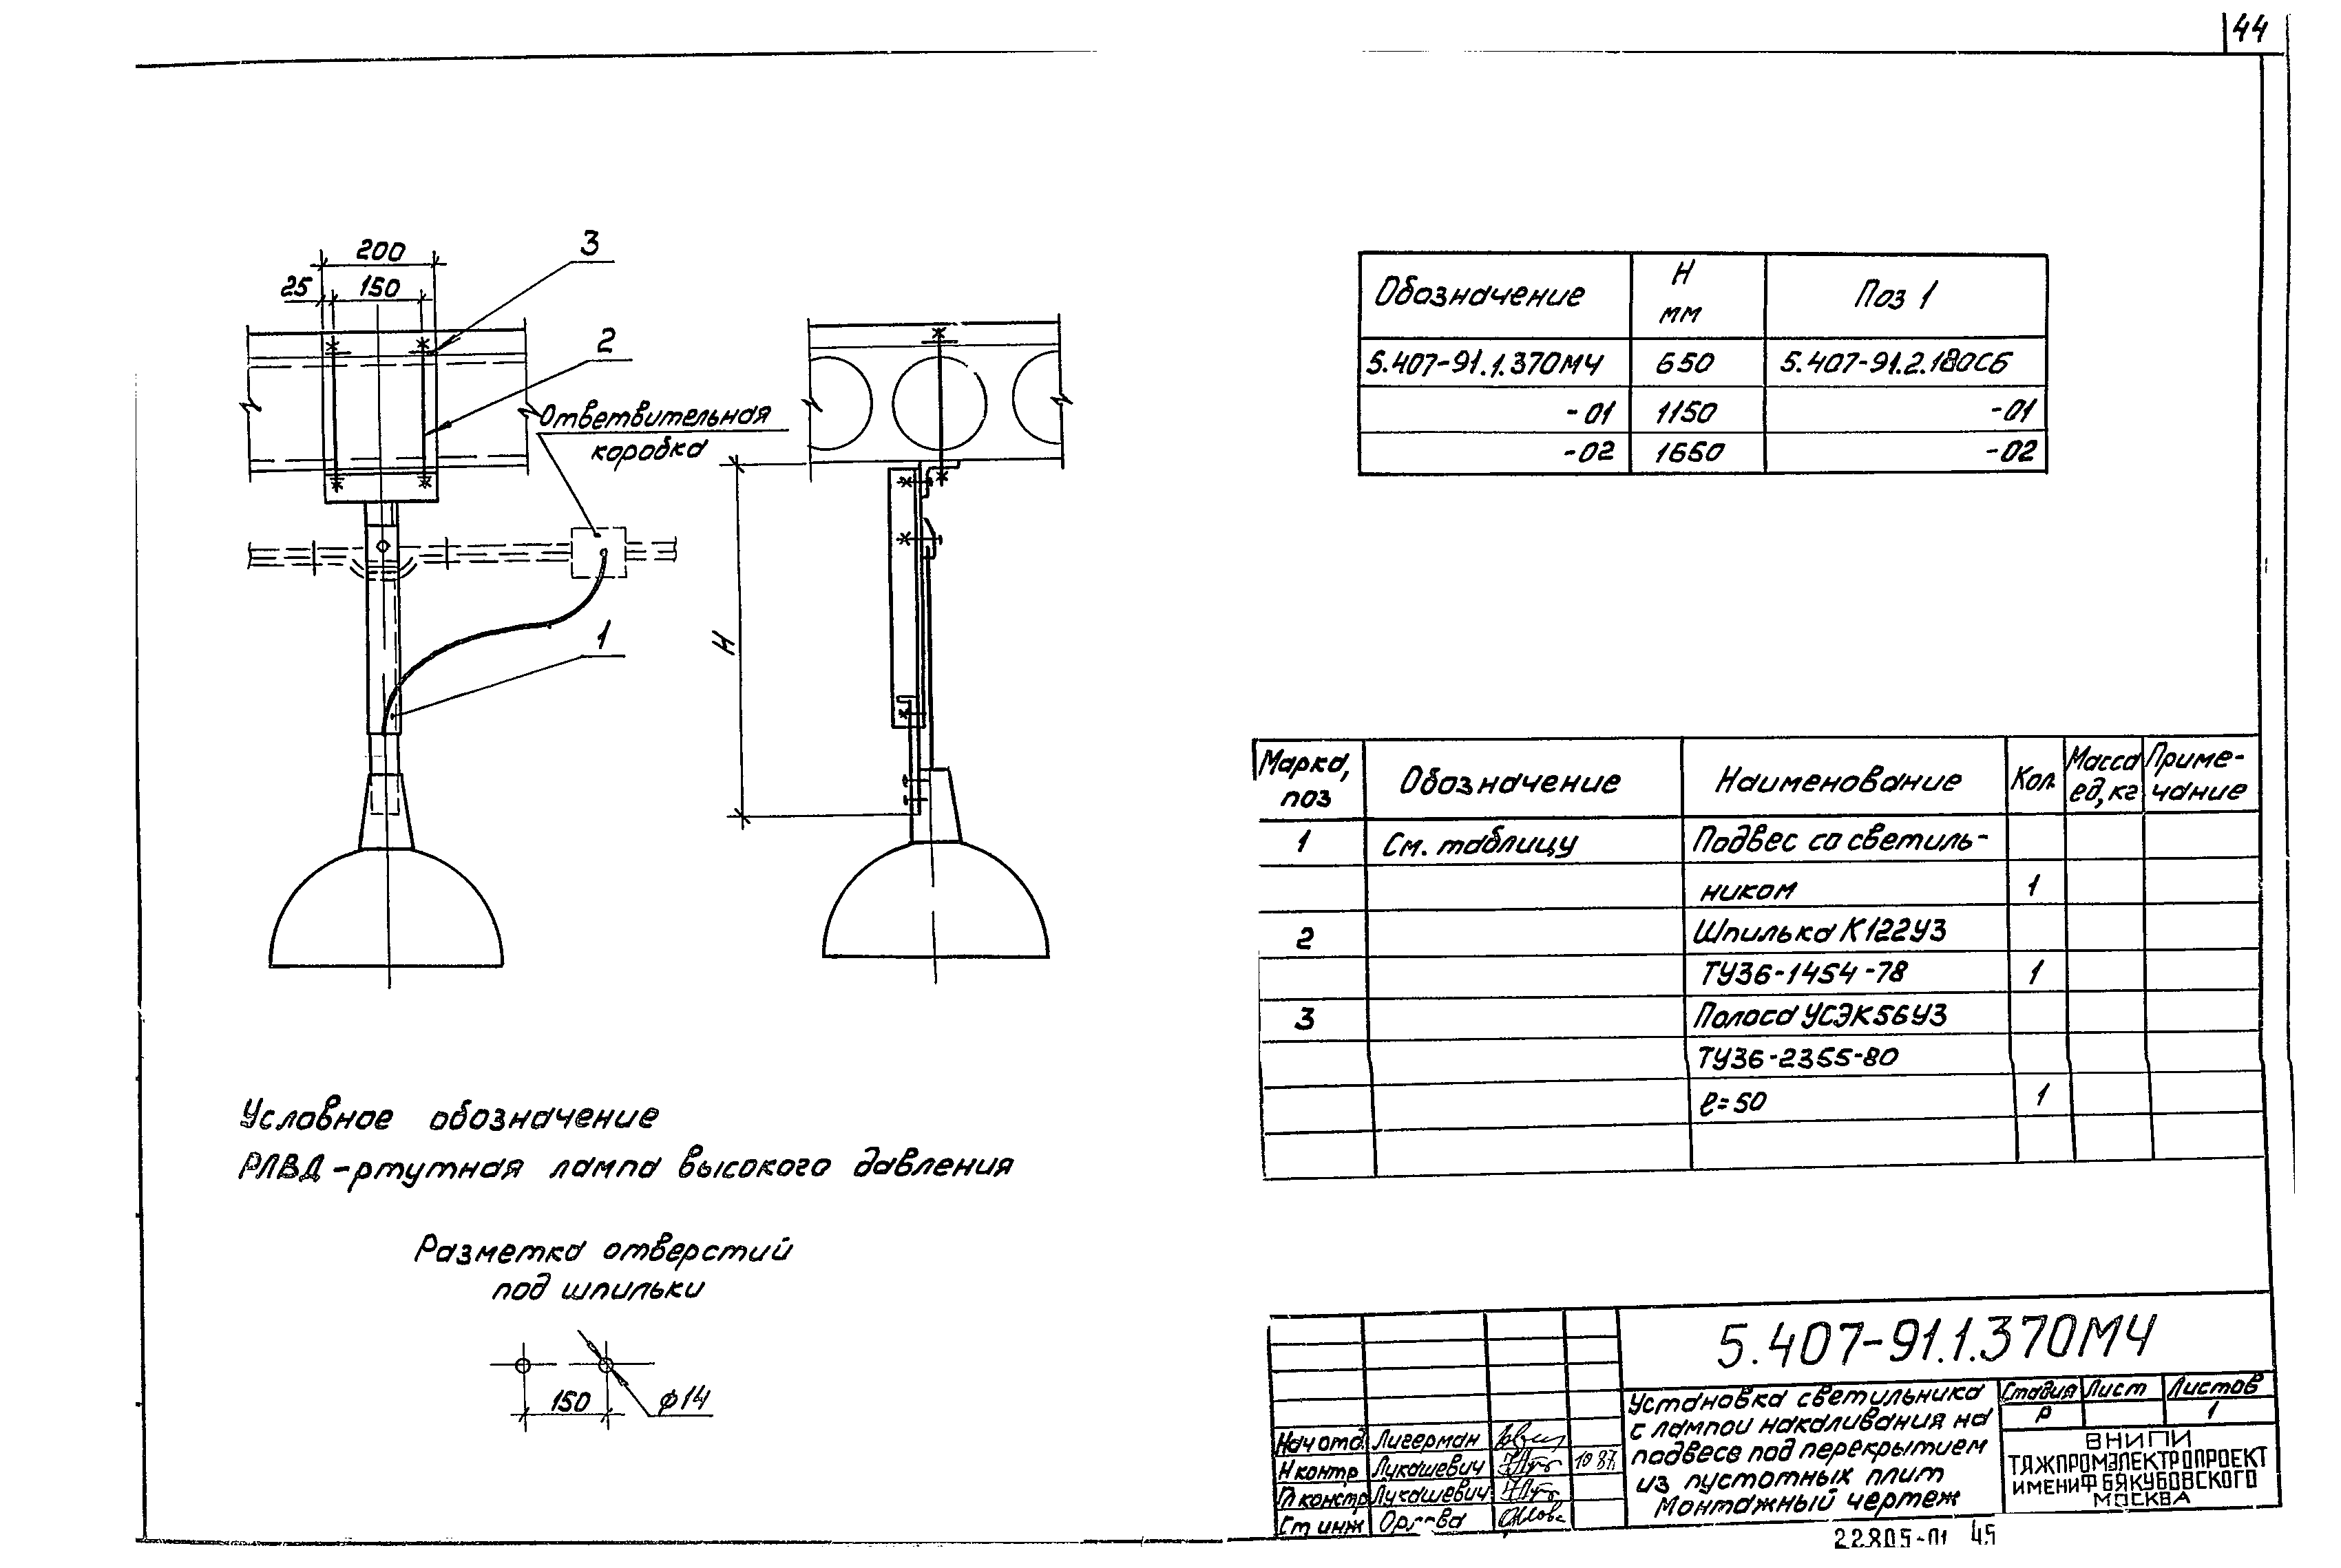 44
200
25 150
3
2
Ответвительная
коробка
1
H
Обозначение H мм Поз 1
5.407-91.1.370МЧ 650 5.407-91.2.180СБ
-01 1150 -01
-02 1650 -02
Марка, поз Обозначение Наименование Кол. Масса ед, кг Приме-чание
1 См. таблицу Подвес со светиль-
ником 1
2 Шпилька К122У3
ТУ36-1454-78 1
3 Полоса УСЭК56У3
ТУ36-2355-80
ℓ=50 1
Условное обозначение
РЛВД-ртутная лампа высокого давления
Разметка отверстий
под шпильки
150 ϕ14
5.407-91.1.370МЧ
Установка светильника
с лампой накаливания на
подвесе под перекрытием
из пустотных плит
Монтажный чертеж
Стадия Лист Листов
Р 1
ВНИПИ
ТЯЖПРОМЭЛЕКТРОПРОЕКТ
ИМЕНИ Ф.Б.ЯКУБОВСКОГО
МОСКВА
Нач отд. Лигерман
Н контр Лукашевич 10 87г.
Гл констр Лукашевич
Ст инж
22805-01 45